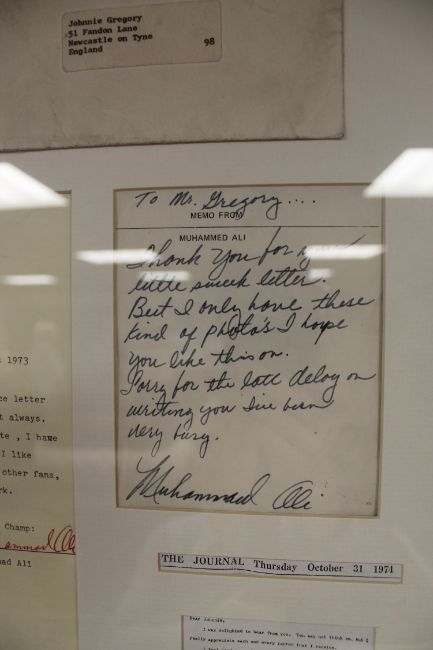 Johnnie Gregory
51 Fandon Lane
Newcastle on Tyne 98
England
To Mr. Gregory....
MEMO FROM
MUHAMMED ALI
Thank You for
little sweek letter.
But I only have these
kind of photo's I hope
you like this on.
Sorry for the late delay on
writing you I've been
very busy.
Muhammad Ali
1973
ce letter
t always.
te , I have
I like
other fans,
rk.
Champ:
ammad Ali
ad Ali
THE JOURNAL Thursday October 31 1974
Dear Johnnie,
I was delighted to hear from you. You may not think so, but I
really appreciate each and every letter that I receive.